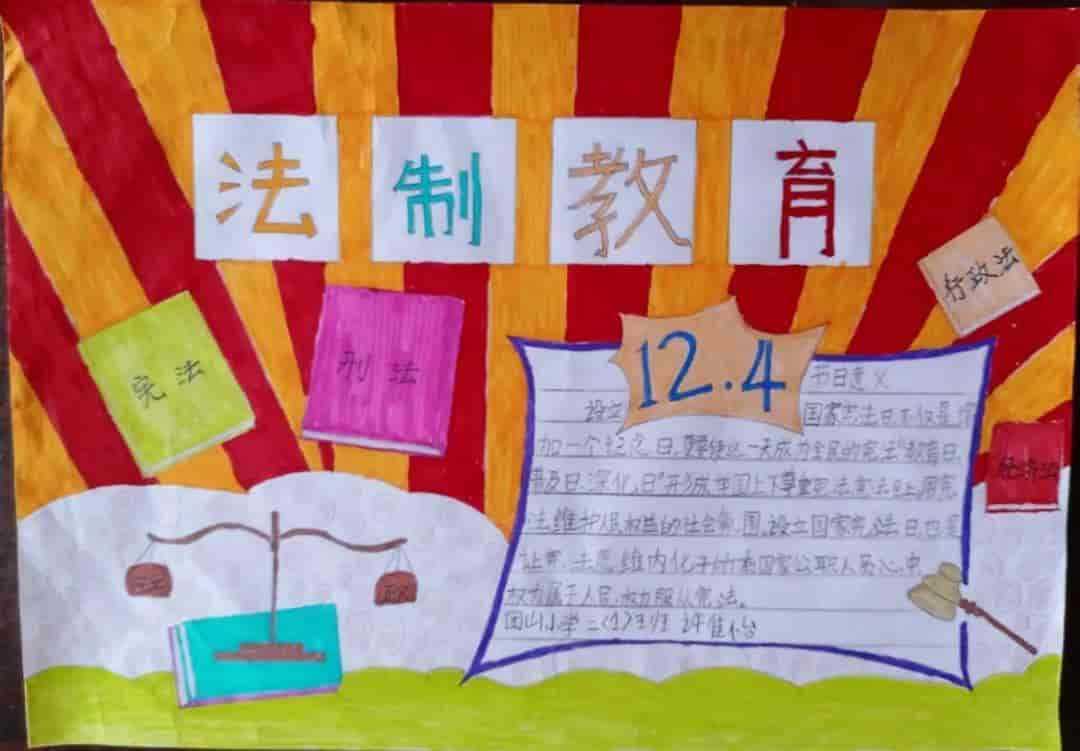 法制教育
行政法
宪法
刑法
12.4
节日意义
设立 国家宪法日不仅是增
加一个纪念日,更要使这一天成为全民的宪法"教育日、
普及日、深化日"形成举国上下尊重宪法宪法至上、用宪
法维护人民权益的社会氛围。设立国家宪法日也是
让宪法思维内化于所有国家公职人员心中
权力属于人民,权力服从宪法。
团山小学二(1)班
经济法
法
政